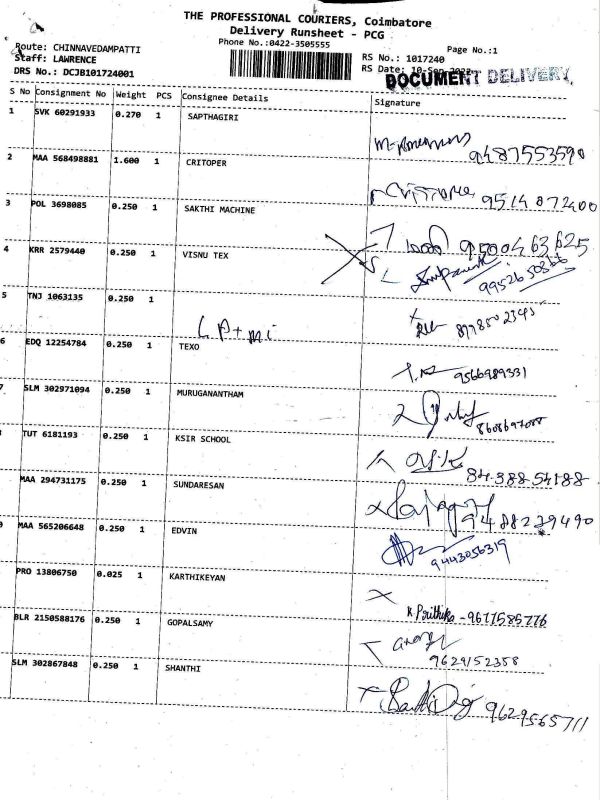 THE PROFESSIONAL COURIERS, Coimbatore
Delivery Runsheet - PCG
Phone No.:0422-3505555
Page No.:1
Route: CHINNAVEDAMPATTI
Staff: LAWRENCE
DRS No.: DCJB101724001
RS No.: 1017240
RS Date: 10-Sep
DOCUMENT DELIVERY
S No Consignment No Weight PCS Consignee Details Signature
1 SVK 60291933 0.270 1 SAPTHAGIRI
9487553590
2 MAA 568498881 1.600 1 CRITOPER
9514872400
3 POL 3698085 0.250 1 SAKTHI MACHINE
9500463625
4 KRR 2579440 0.250 1 VISNU TEX
5 TNJ 1063135 0.250 1
6 EDQ 12254784 0.250 1 TEXO
9566989331
7 SLM 302971094 0.250 1 MURUGANANTHAM
TUT 6181193 0.250 1 KSIR SCHOOL
8438854188
MAA 294731175 0.250 1 SUNDARESAN
9488239490
MAA 565206648 0.250 1 EDVIN
9443056319
PRO 13806750 0.025 1 KARTHIKEYAN
K Prithika - 9677585776
BLR 2150588176 0.250 1 GOPALSAMY
9629152358
SLM 302867848 0.250 1 SHANTHI
9629565711